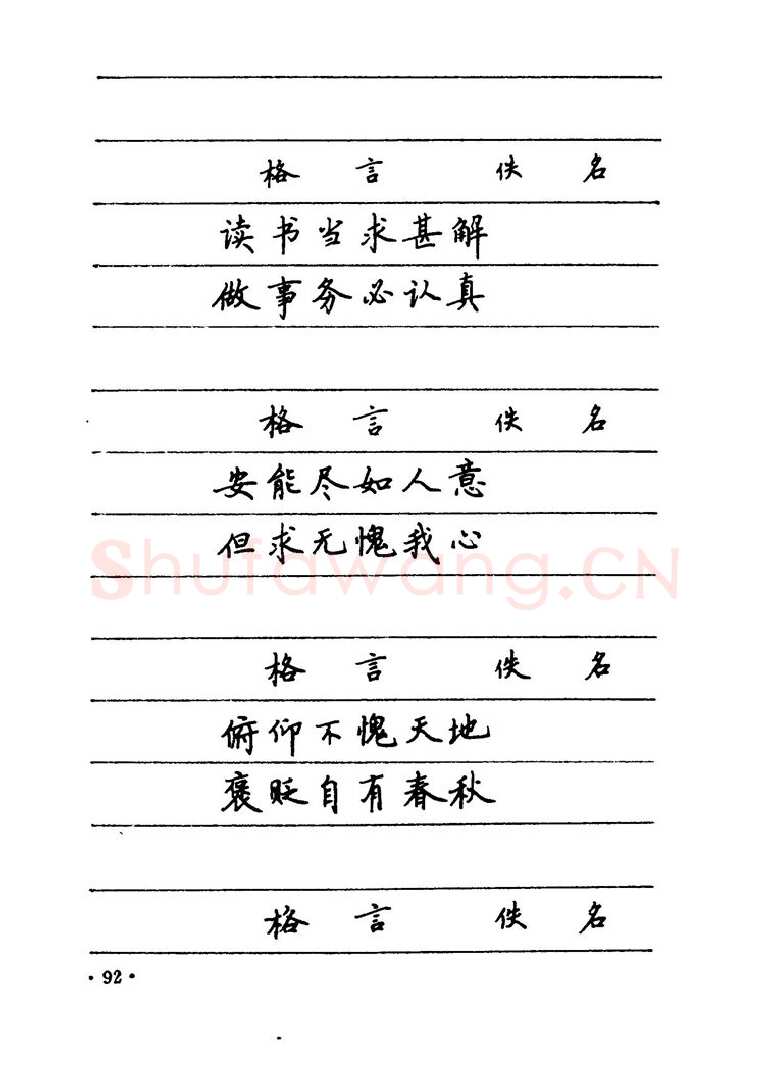 格言 佚名
读书当求甚解
做事务必认真
格言 佚名
安能尽如人意
但求无愧我心
Shufawang.CN
格言 佚名
俯仰不愧天地
褒贬自有春秋
格言 佚名
·92·